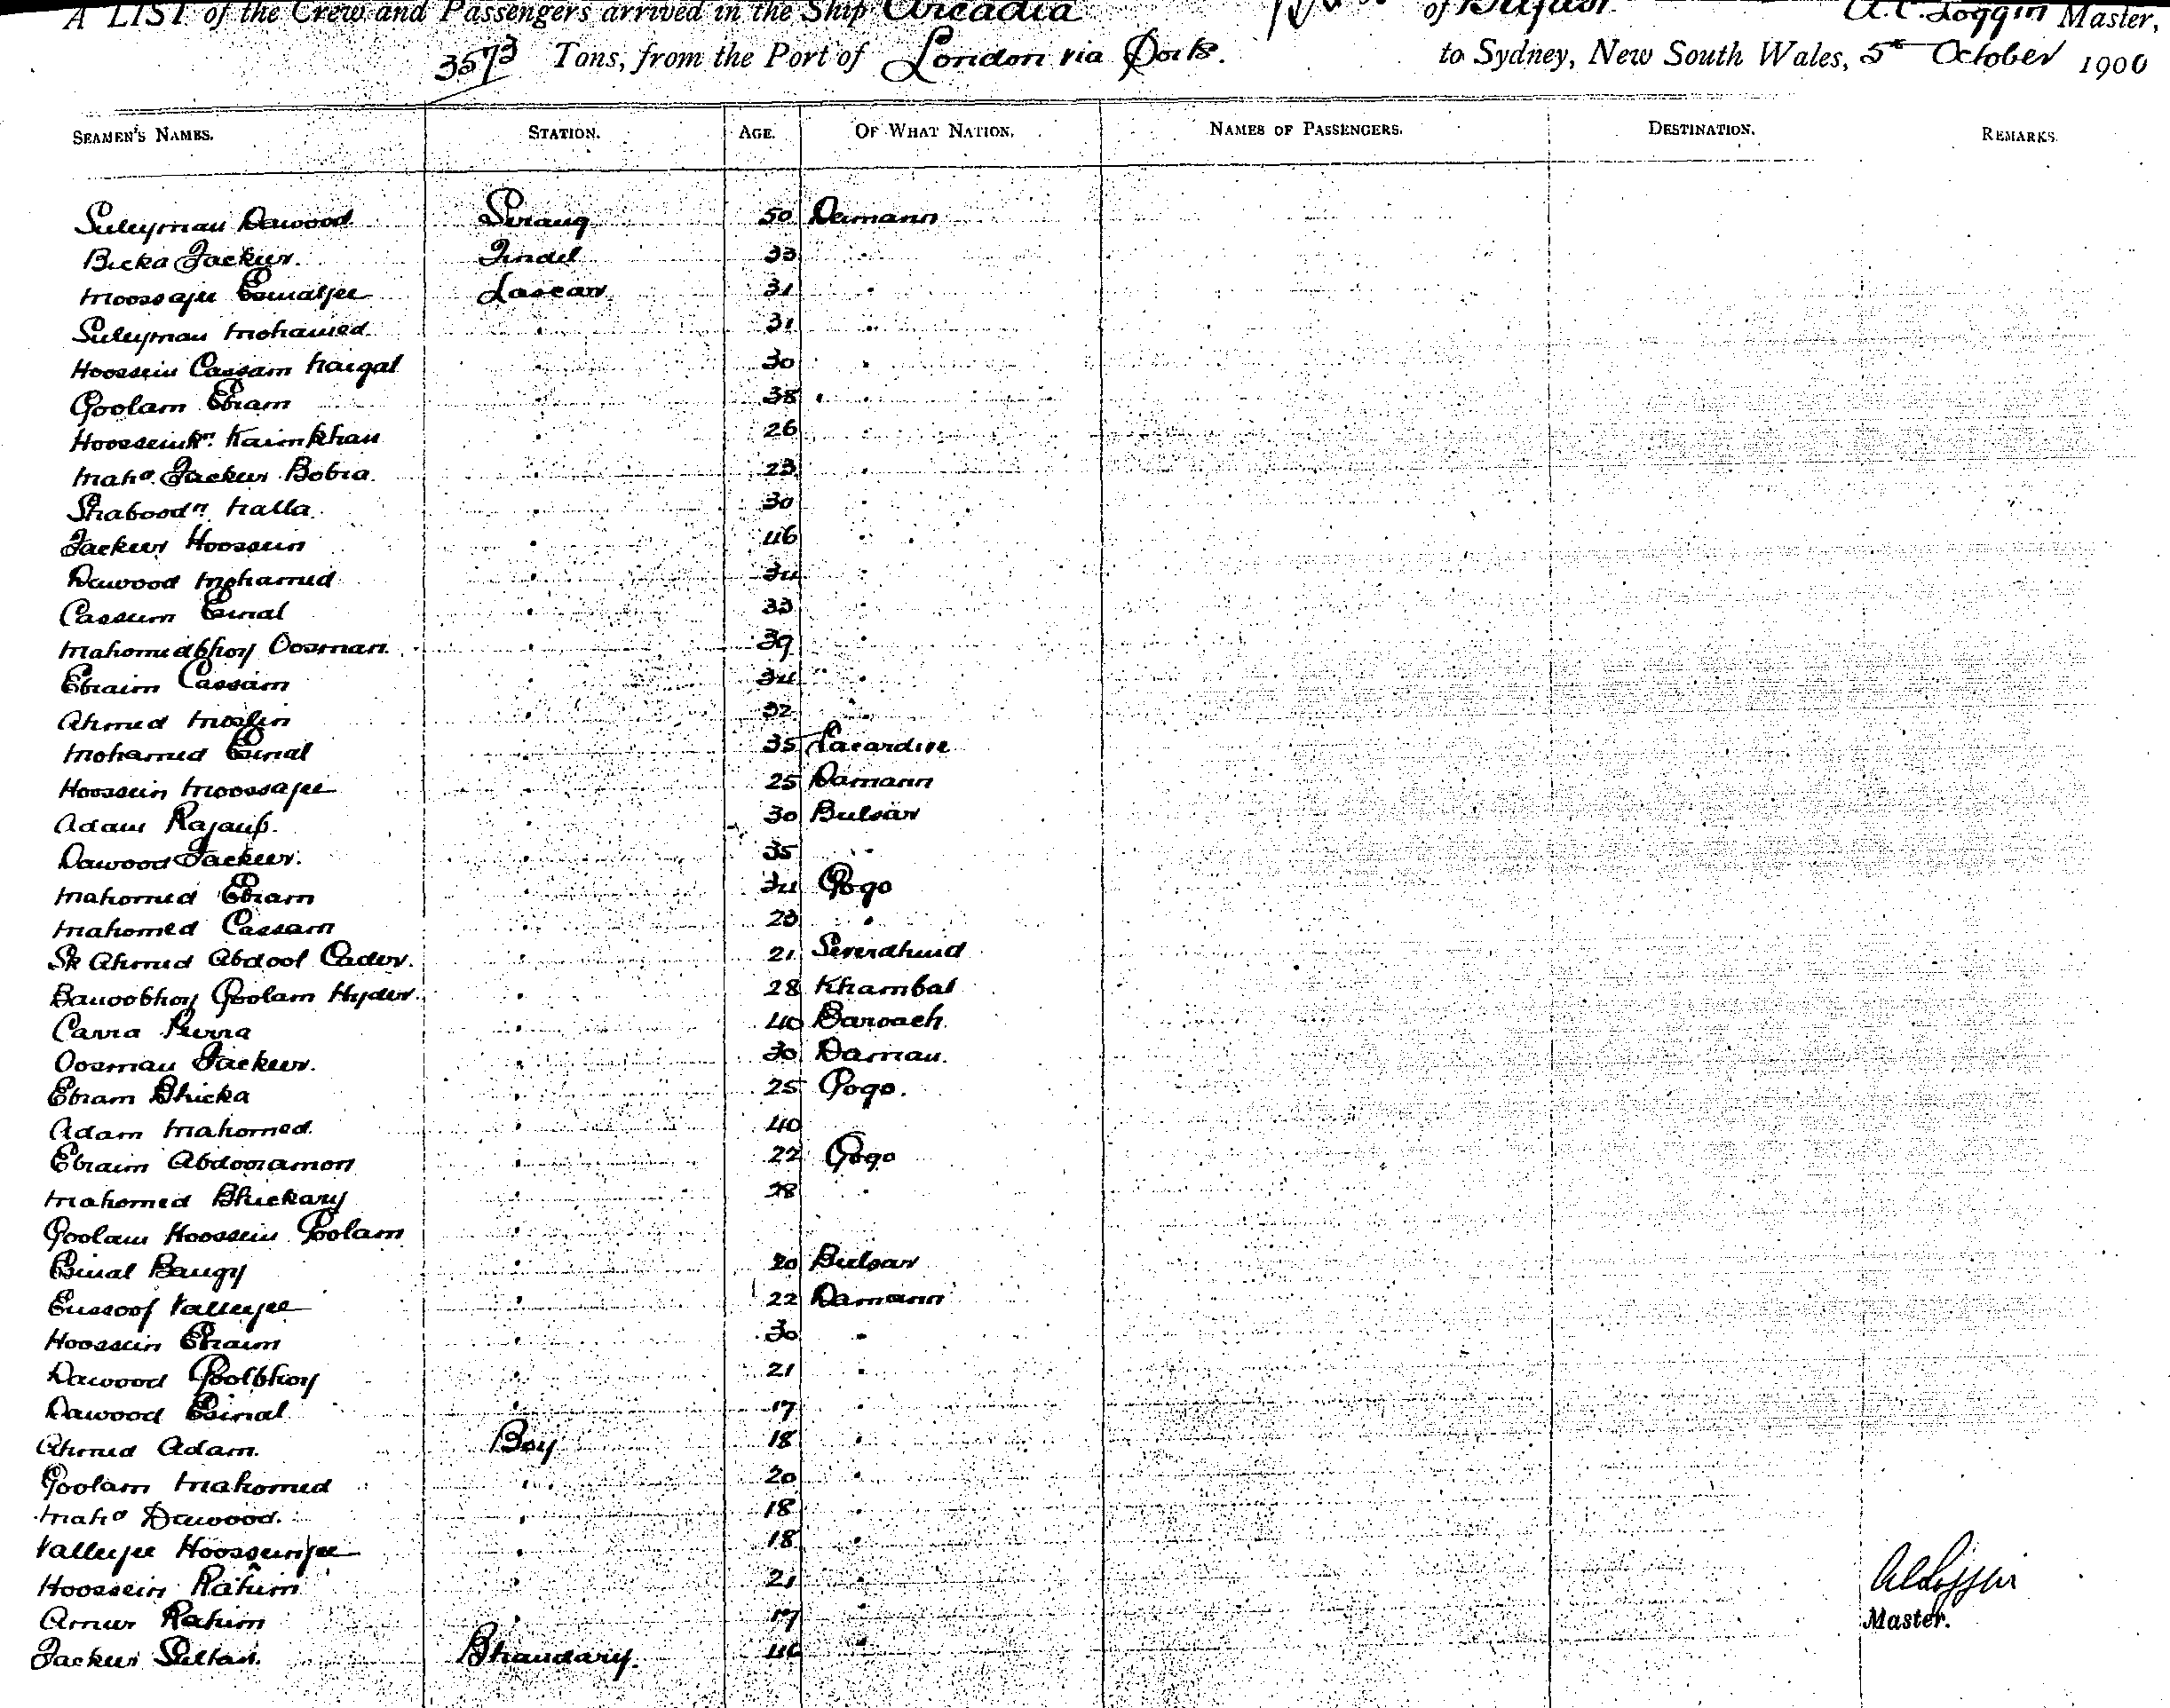 A LIST of the Crew and Passengers arrived in the Ship Arcadia of Belfast. A.C. Loggin Master,
3573 Tons, from the Port of London via Ports. to Sydney, New South Wales, 5th October 1900
SEAMEN'S NAMES. STATION. AGE. OF WHAT NATION. NAMES OF PASSENGERS. DESTINATION. REMARKS.
Suleyman Dawood Serang 50 Damann
Bicka Jackur. Tindel 33 "
Moossajee Esmaljee Lascar 31 "
Suleyman Mohamed " 31 "
Hoossein Cassam " 30 "
Goolam Ebram " 38 "
Hoosseinkn. Kaimkhan " 26 "
Mahd. Jackur Bobra. " 23 "
Shaboodn " 30 "
Jackur Hoossein " 46 "
Dawood Mohamed " 34 "
Cassum Esmal " 33 "
Mahomedbhoy Oosman. " 39 "
Ebraim Cassam " 34 "
Ahmed " 32 "
Mohamed Esmal " 35
Hoossein Moossajee " 25 Damann
Adam Rajaub. " 30 Bulsar
Dawood Jackur. " 35 "
Mahomed Ebram " 34 Gogo
Mahomed Cassam " 23 "
Sk Ahmed Abdool Cader. " 21
Bawoobhoy Goolam Hyder. " 28 Khambat
Carra " 40 Baroach
Oosman Jackur. " 30 Daman.
Ebram Bhicka " 25 Gogo.
Adam Mahomed. " 40
Ebraim Abdooramon " 22 Gogo
Mahomed Bhickary " 28 "
Goolam Hoossein Goolam "
Esmal Baugy " 20 Bulsar
Eussoof Valleyjee " 22 Damann
Hoossein Ebraim " 30 "
Dawood Goolbhoy " 21 "
Dawood Esmal " 17 "
Ahmed Adam. Boy 18 "
Goolam Mahomed " 20 "
Mahd Dawood. " 18 "
Valleyjee Hoosseinjee " 18 "
Hoossein Rahim " 21 "
Amur Rahim " 17 "
Jackur Sultan. Bhandary. 46 "
A C Loggin
Master.